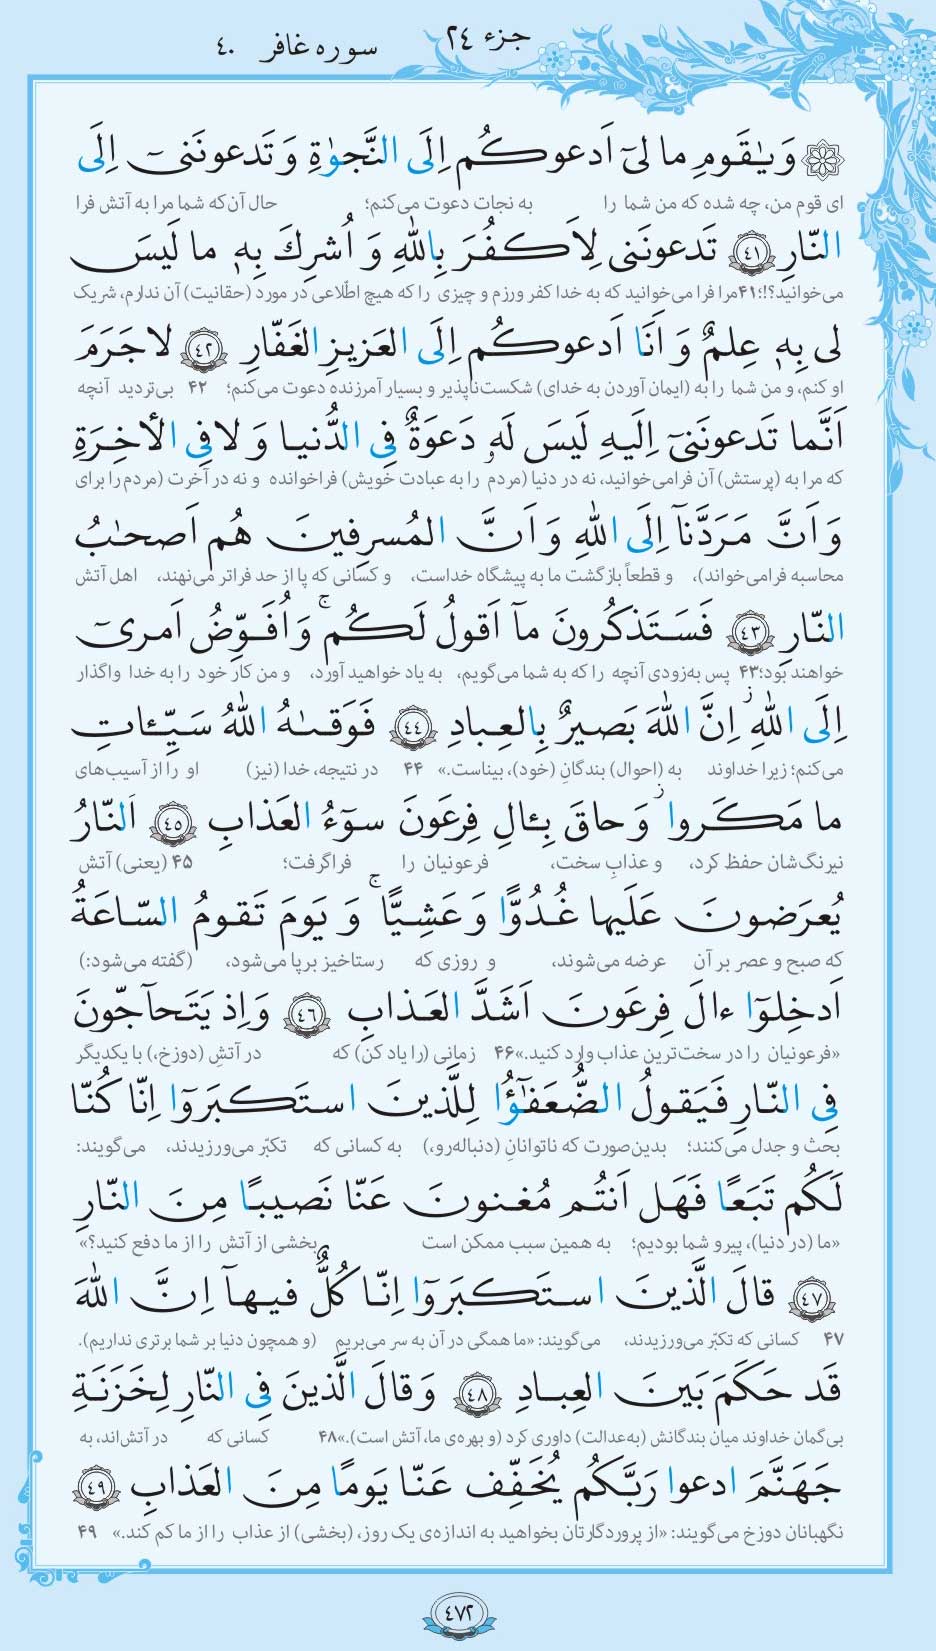 جزء ٢٤
سوره غافر ٤٠
وَ يٰقَومِ ما لى اَدعوكُم اِلَى النَّجوٰةِ وَ تَدعونَنى اِلَى
ای قوم من، چه شده که من شما را به نجات دعوت می‌کنم؛ حال آن‌که شما مرا به آتش فرا
النّارِ ﴿٤١﴾ تَدعونَنى لِاَكفُرَ بِاللهِ وَ اُشرِكَ بِهٖ ما لَيسَ
می‌خوانید؟!؛ ۴۱ مرا فرا می‌خوانید که به خدا کفر ورزم و چیزی را که هیچ اطّلاعی در مورد (حقانیت) آن ندارم، شریک
لى بِهٖ عِلمٌ وَ اَنَا اَدعوكُم اِلَى العَزيزِ الغَفّارِ ﴿٤٢﴾ لا جَرَمَ
او کنم، و من شما را به (ایمان آوردن به خدای) شکست‌ناپذیر و بسیار آمرزنده دعوت می‌کنم؛ ۴۲ بی‌تردید آنچه
اَنَّما تَدعونَنىٓ اِلَيهِ لَيسَ لَهٗ دَعوَةٌ فِى الدُّنيا وَ لا فِى الأخِرَةِ
که مرا به (پرستش) آن فرامی‌خوانید، نه در دنیا (مردم را به عبادت خویش) فراخوانده و نه در آخرت (مردم را برای
وَ اَنَّ مَرَدَّنآ اِلَى اللهِ وَ اَنَّ المُسرِفينَ هُم اَصحٰبُ
محاسبه فرامی‌خواند)، و قطعاً بازگشت ما به پیشگاه خداست، و کسانی که پا از حد فراتر می‌نهند، اهل آتش
النّارِ ﴿٤٣﴾ فَسَتَذكُرونَ مآ اَقولُ لَكُم ۚ وَ اُفَوِّضُ اَمرىٓ
خواهند بود؛ ۴۳ پس به‌زودی آنچه را که به شما می‌گویم، به یاد خواهید آورد، و من کار خود را به خدا واگذار
اِلَى اللهِ ز اِنَّ اللهَ بَصيرٌ بِالعِبادِ ﴿٤٤﴾ فَوَقىٰهُ اللهُ سَيِّـٔاتِ
می‌کنم؛ زیرا خداوند به (احوال) بندگانِ (خود)، بیناست.» ۴۴ در نتیجه، خدا (نیز) او را از آسیب‌های
ما مَكَروا ز وَ حاقَ بِـٔالِ فِرعَونَ سوٓءُ العَذابِ ﴿٤٥﴾ اَلنّارُ
نیرنگ‌شان حفظ کرد، و عذابِ سخت، فرعونیان را فراگرفت؛ ۴۵ (یعنی) آتش
يُعرَضونَ عَلَيها غُدُوًّا وَ عَشِيًّا ۚ وَ يَومَ تَقومُ السّاعَةُ
که صبح و عصر بر آن عرضه می‌شوند، و روزی که رستاخیز برپا می‌شود، (گفته می‌شود:)
اَدخِلوٓا ءالَ فِرعَونَ اَشَدَّ العَذابِ ﴿٤٦﴾ وَ اِذ يَتَحآجّونَ
«فرعونیان را در سخت‌ترین عذاب وارد کنید.» ۴۶ زمانی (را یاد کن) که در آتشِ (دوزخ،) با یکدیگر
فِى النّارِ فَيَقولُ الضُّعَفٰٓؤُا لِلَّذينَ استَكبَروٓا اِنّا كُنّا
بحث و جدل می‌کنند؛ بدین‌صورت که ناتوانانِ (دنباله‌رو،) به کسانی که تکبّر می‌ورزیدند، می‌گویند:
لَكُم تَبَعًا فَهَل اَنتُم مُغنونَ عَنّا نَصيبًا مِنَ النّارِ
«ما (در دنیا)، پیرو شما بودیم؛ به همین سبب ممکن است بخشی از آتش را از ما دفع کنید؟»
﴿٤٧﴾ قالَ الَّذينَ استَكبَروٓا اِنّا كُلٌّ فيهآ اِنَّ اللهَ
۴۷ کسانی که تکبّر می‌ورزیدند، می‌گویند: «ما همگی در آن به سر می‌بریم (و همچون دنیا بر شما برتری نداریم).
قَد حَكَمَ بَينَ العِبادِ ﴿٤٨﴾ وَ قالَ الَّذينَ فِى النّارِ لِخَزَنَةِ
بی‌گمان خداوند میان بندگانش (به‌عدالت) داوری کرد (و بهره‌ی ما، آتش است).» ۴۸ کسانی که در آتش‌اند، به
جَهَنَّمَ ادعوا رَبَّكُم يُخَفِّف عَنّا يَومًا مِنَ العَذابِ ﴿٤٩﴾
نگهبانان دوزخ می‌گویند: «از پروردگارتان بخواهید به اندازه‌ی یک روز، (بخشی) از عذاب را از ما کم کند.» ۴۹
٤٧٢